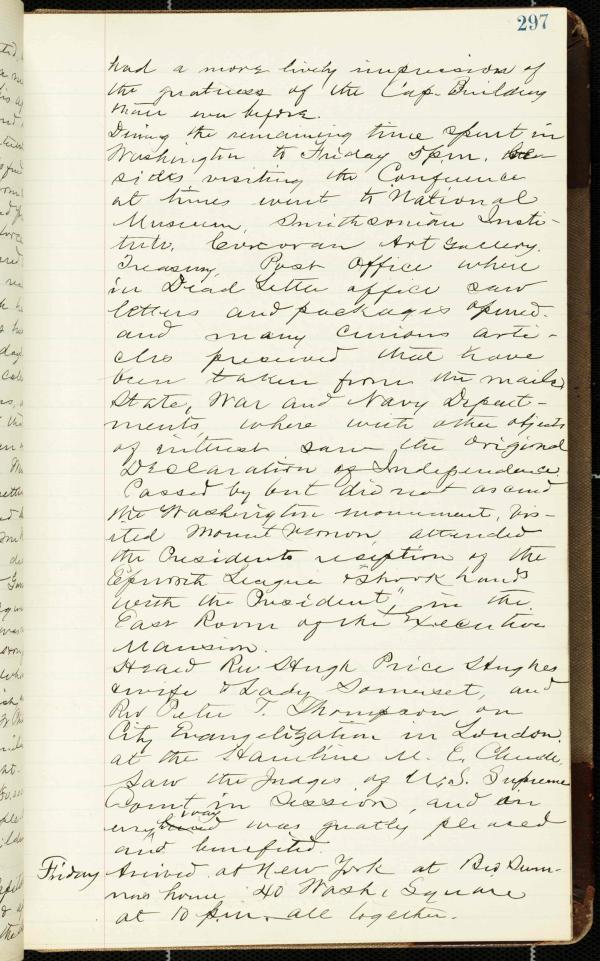 297
had a more lively impression of
the greatness of the Cap. Building
than ever before.
During the remaining time spent in
Washington to Friday 5 pm. be-
sides visiting the Conference
at times went to National
Museum, Smithsonian Insti-
tute, Corcoran Art Gallery.
Treasury, Post Office where
in Dead Letter office saw
letters and packages opened.
and many curious arti-
cles preserved that have
been taken from the mails
State, War and Navy Depart-
ments, where with other objects
of interest saw the original
Declaration of Independence.
Passed by but did not ascend
the Washington monument, vis-
ited Mount Vernon, attended
the Presidents reception of the
Epworth League & "shook hands
with the President", in the
East Room of the Executive
Mansion.
Heard Rev Hugh Price Hughes
& wife & Lady Somerset, and
Rev Peter T. Thompson on
City Evangelization in London.
at the Hamline M. E. Church,
Saw the Judges of U.S. Supreme
Court in Session, and in
every way was greatly pleased
and benefited.
Friday Arrived at New York at Bro
home 40 Wash. Square
at 10 p.m. all together.